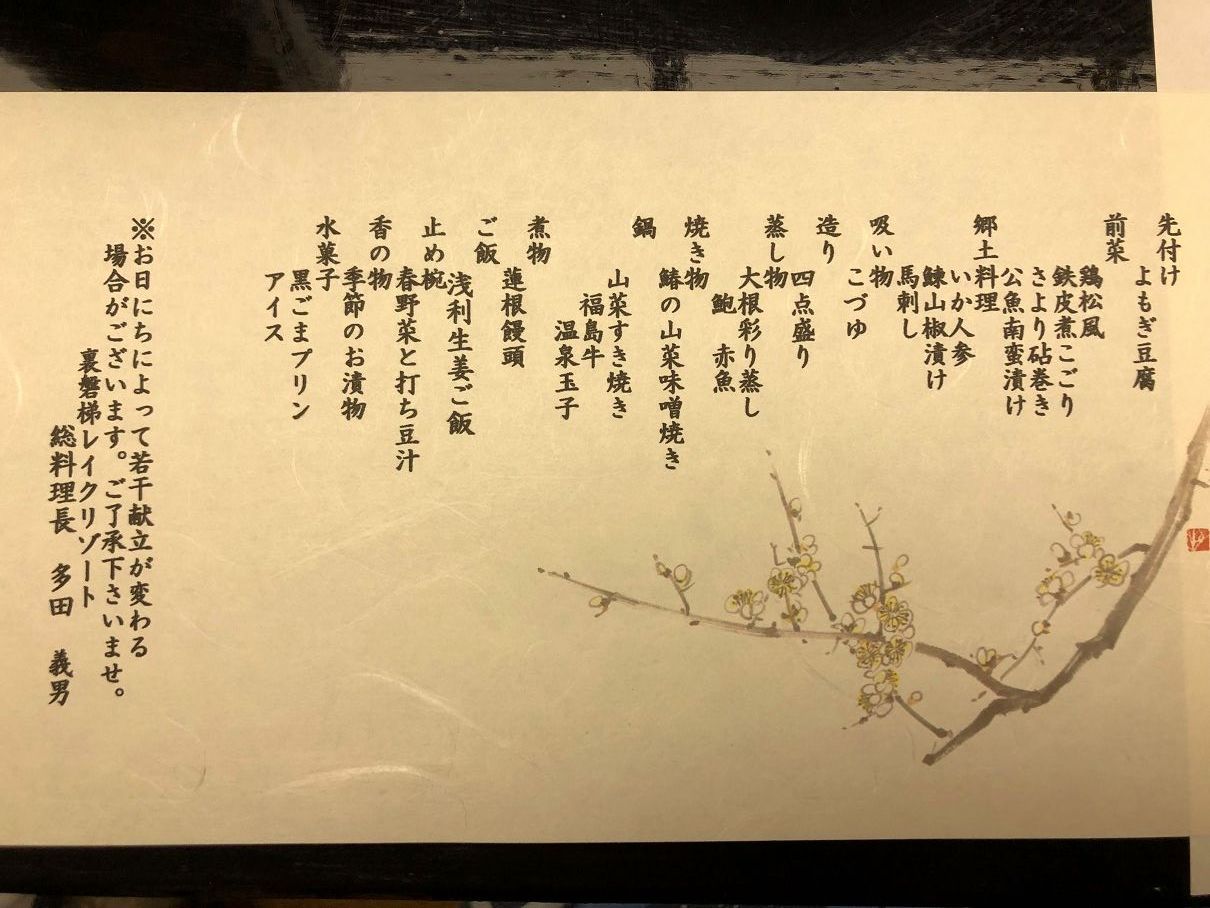 先付け
よもぎ豆腐
前菜
鶏松風
鉄皮煮こごり
さより砧巻き
公魚南蛮漬け
郷土料理
いか人参
鰊山椒漬け
馬刺し
吸い物
こづゆ
造り
四点盛り
蒸し物
大根彩り蒸し
鮑 赤魚
焼き物
鰆の山菜味噌焼き
鍋
山菜すき焼き
福島牛
温泉玉子
煮物
蓮根饅頭
ご飯
浅利生姜ご飯
止め椀
春野菜と打ち豆汁
香の物
季節のお漬物
水菓子
黒ごまプリン
アイス
※お日にちによって若干献立が変わる
場合がございます。ご了承下さいませ。
裏磐梯レイクリゾート
総料理長 多田 義男